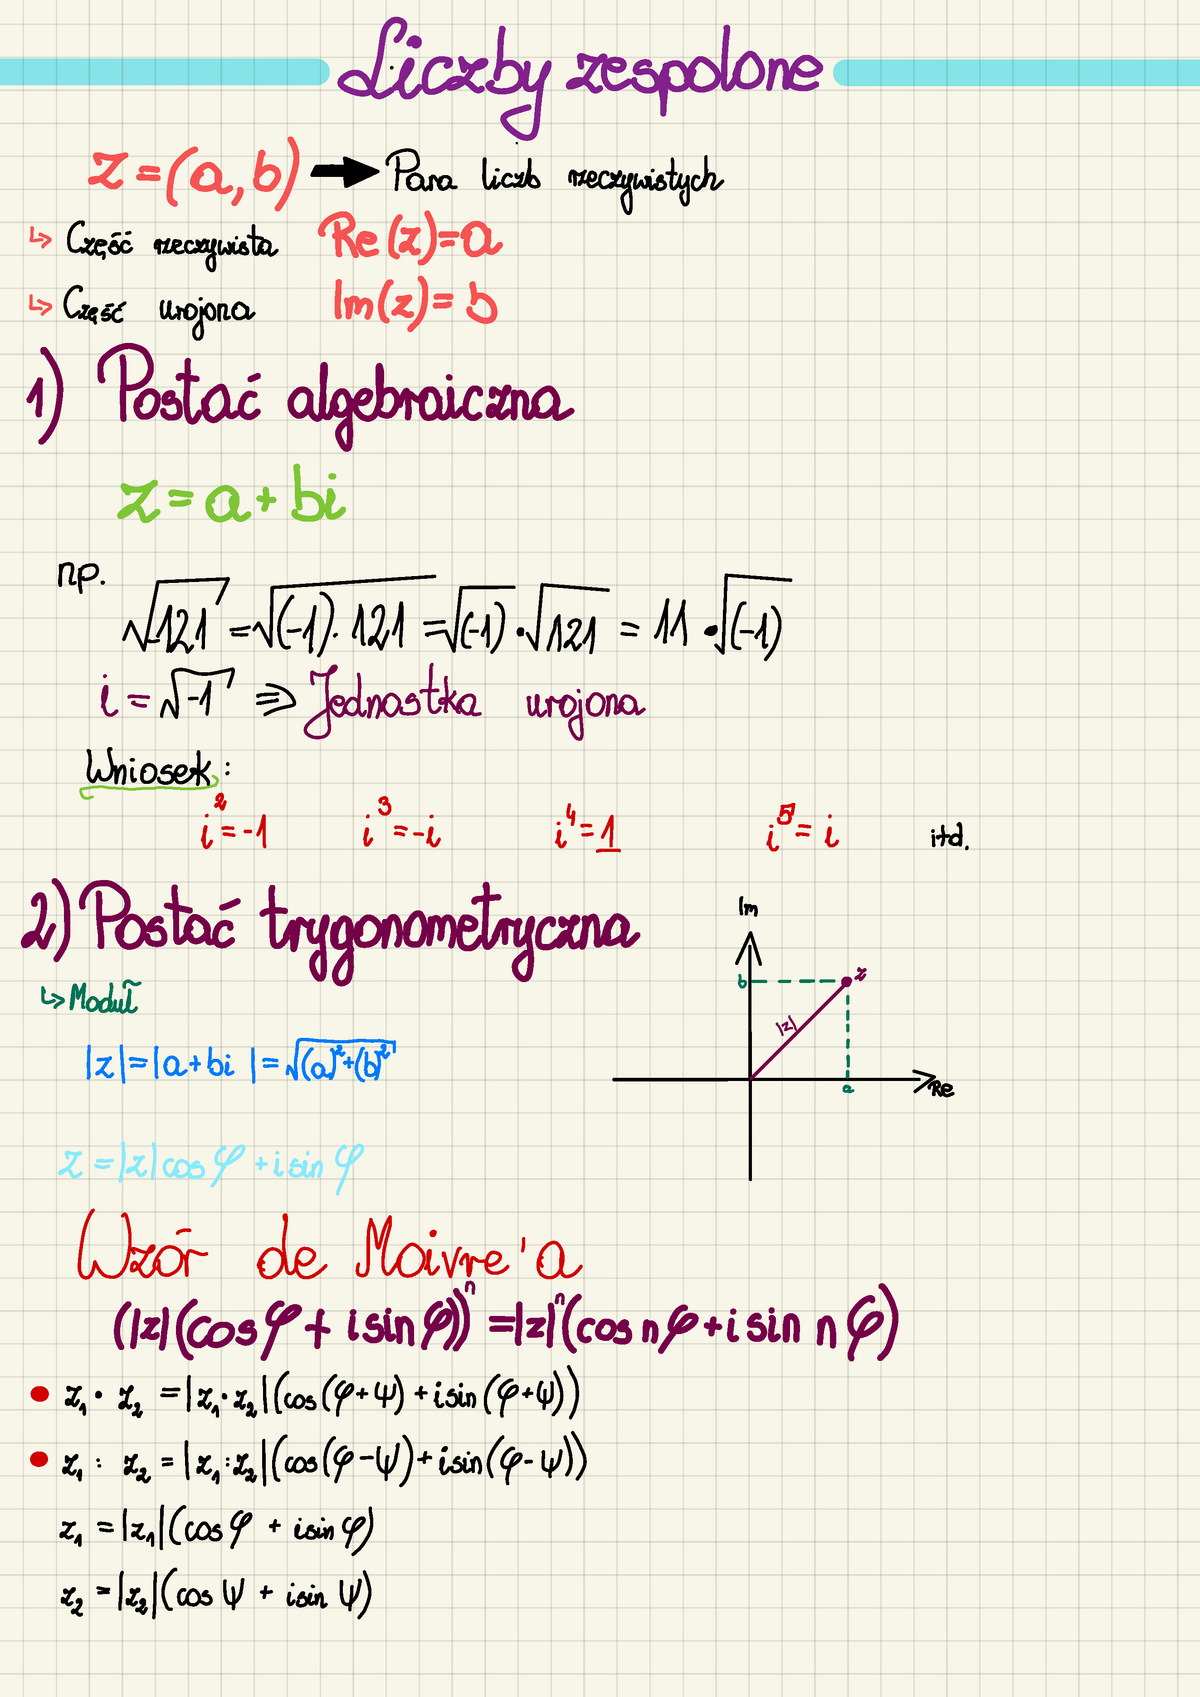 Liczby zespolone
z = (a, b) → Para liczb rzeczywistych
↳ Część rzeczywista Re(z)=a
↳ Część urojona Im(z)= b
1) Postać algebraiczna
z = a + bi
np.
√-121 = √(-1)·121 = √(-1) · √121 = 11 · √(-1)
i = √-1 ⇒ Jednostka urojona
Wniosek:
i² = -1 i³ = -i i⁴ = 1 i⁵ = i itd.
2) Postać trygonometryczna
↳ Moduł
|z| = |a+bi| = √(a)²+(b)²
Im
b
z
|z|
a
Re
z = |z| cos φ + i sin φ
Wzór de Moivre'a
(|z|(cos φ + i sin φ))ⁿ = |z|ⁿ(cos n φ + i sin n φ)
• z₁ · z₂ = |z₁·z₂|(cos(φ+ψ) + i sin(φ+ψ))
• z₁ : z₂ = |z₁:z₂|(cos(φ-ψ) + i sin(φ-ψ))
z₁ = |z₁|(cos φ + i sin φ)
z₂ = |z₂|(cos ψ + i sin ψ)